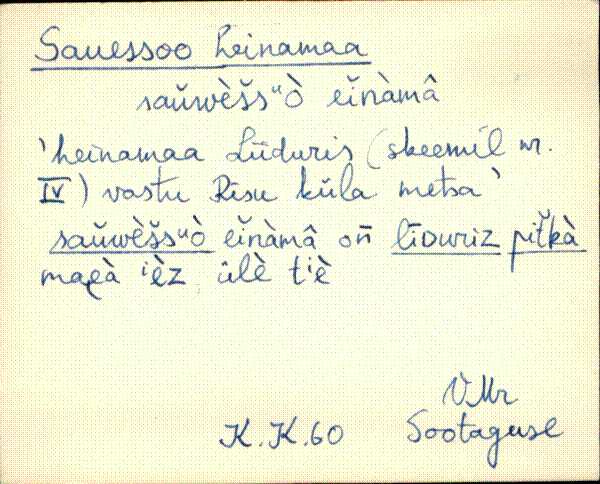 Sauessoo heinamaa
saŭwès̆sᵘò ein̆àmâ
'heinamaa Liiduris (skeemil nr.
IV) vastu Risu küla metsa'
saŭwès̆sᵘò ein̆àmâ on̄ līᴅuriz pit̆kà
ⁱèz ülè tⁱè
V Mr
K.K.60 Sootaguse